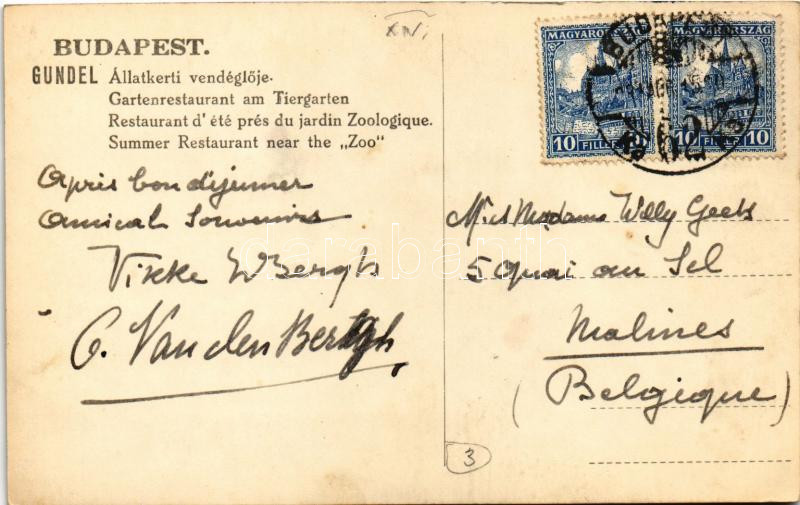 XIV.
BUDAPEST.
GUNDEL Állatkerti vendéglője.
Gartenrestaurant am Tiergarten
Restaurant d' été prés du jardin Zoologique.
Summer Restaurant near the „Zoo"
Après bon dejeuner
Amical Souvenirs
Vikke WBergh
C. Van den Bergh
MAGYARORSZÁG
10 FILLÉR 10
MAGYARORSZÁG
10 FILLÉR 10
BUDAPEST
62
M. et Madame Willy Geets
5 Quai au Sel
Malines
(Belgique)
3
darabanth